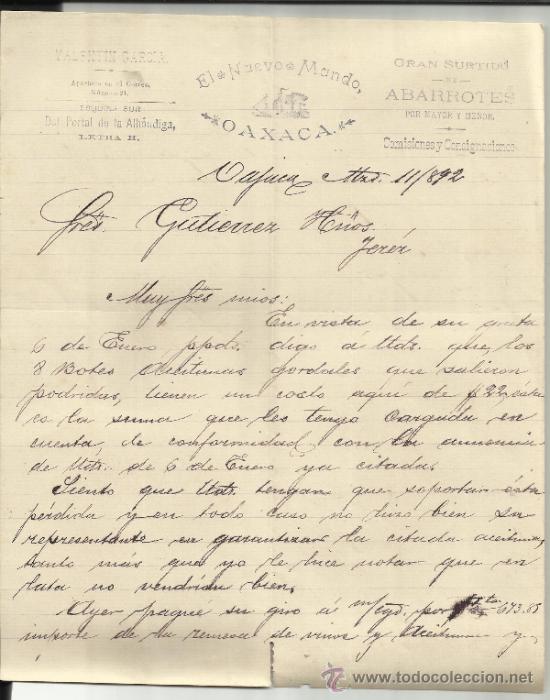 VALENTIN GARCIA.
Apartado en el Correo,
Número 21.
ESQUINA SUR
Del Portal de la Alhóndiga,
LETRA H.
El Nuevo Mundo,
OAXACA.
GRAN SURTIDO
DE
ABARROTES
POR MAYOR Y MENOR.
Comisiones y Consignaciones
Oajaca Mzo. 11/892
Sres. Gutierrez Hnos.
Jeréz
Muy Sres mios:
En vista de su grata
6 de Enero ppdo. digo á Uds. que, los
8 Botes Aceitunas gordales que salieron
podridas, tienen un costo aquí de $22, ésta
es la suma que les tengo cargada en
cuenta, de conformidad con la anuencia
de Uds. de 6 de Enero ya citada.
Siento que Uds. tengan que soportar ésta
pérdida y en todo caso no hizo bien su
representante en garantizar la citada aceituna,
tanto más que yo le hice notar que en
lata no vendrían bien.
Ayer pagué su giro á m/ cgo. por 673.85
importe de la remesa de vinos y Aceitunas y
todocoleccion.net